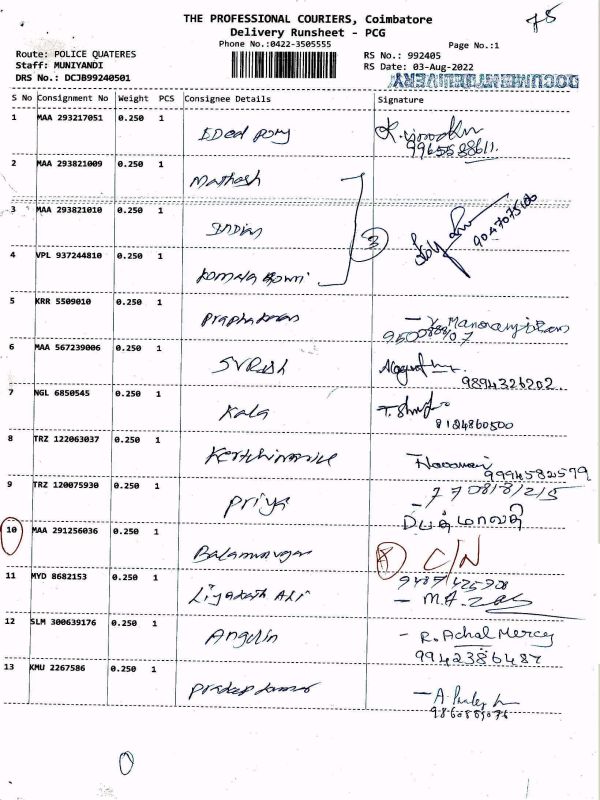 75
THE PROFESSIONAL COURIERS, Coimbatore
Delivery Runsheet - PCG
Phone No.:0422-3505555
Page No.:1
Route: POLICE QUATERES
Staff: MUNIYANDI
DRS No.: DCJB99240501
RS No.: 992405
RS Date: 03-Aug-2022
DOCUMENT DELIVERY
S No Consignment No Weight PCS Consignee Details Signature
1 MAA 293217051 0.250 1
2 MAA 293821009 0.250 1 Mathesh
3 MAA 293821010 0.250 1 Indian 3 9047075106
4 VPL 937244810 0.250 1 Komala
5 KRR 5509010 0.250 1 Prabhakaran
6 MAA 567239006 0.250 1 SURESH
9894326202
7 NGL 6850545 0.250 1 Kala
8124860500
8 TRZ 122063037 0.250 1
9994582579
9 TRZ 120075930 0.250 1 Priya 7708181215
10 MAA 291256036 0.250 1 Balamurugan C/N
11 MYD 8682153 0.250 1 Liyakath Ali
12 SLM 300639176 0.250 1 Angelin R. Achal Mercy
9942386487
13 KMU 2267586 0.250 1 Pradeep kumar